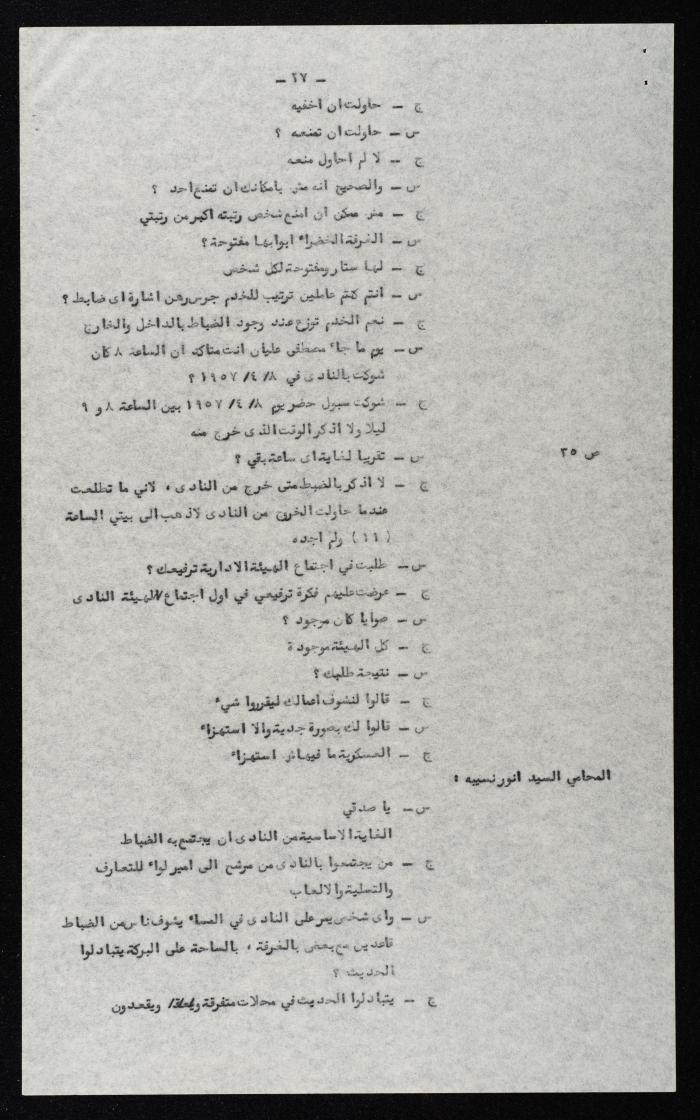 - ٢٧ -
ج - حاولت ان اخفيه
س - حاولت ان تمنعه ؟
ج - لا لم احاول منعه
س - والصحيح انه مش بامكانك ان تمنع احد ؟
ج - مش ممكن ان امنع شخص رتبته اكبر من رتبتي
س - الغرفة الخضراء ابوابها مفتوحة ؟
ج - لها ستار ومفتوحة لكل شخص
س - انتم كنتم عاملين ترتيب للخدم جرس رهن اشارة اى ضابط ؟
ج - نعم الخدم توزع عند وجود الضباط بالداخل والخارج
س - يوم ما جاء مصطفى عليان انت متاكد ان الساعة ٨ كان
شوكت بالنادى في ٨/ ٤/ ١٩٥٧ ؟
ج - شوكت سبول حضر يوم ٨/ ٤/ ١٩٥٧ بين الساعة ٨ و ٩
ليلا ولا اذكر الوقت الذى خرج منه
ص ٣٥
س - تقريبا لغاية اى ساعة بقي ؟
ج - لا اذكر بالضبط متى خرج من النادى ، لاني ما تطلعت
عندما حاولت الخروج من النادى لاذهب الى بيتي الساعة
( ١١ ) ولم اجده
س - طلبت في اجتماع الهيئة الادارية ترفيعك ؟
ج - عرضت عليهم فكرة ترفيعي في اول اجتماع للهيئة النادى
س - صوايا كان موجود ؟
ج - كل الهيئة موجودة
س - نتيجة طلبك ؟
ج - قالوا لنشوف اعمالك ليقرروا شيء
س - قالوا لك بصورة جدية والا استهزاء
ج - العسكرية ما فيهاش استهزاء
المحامي السيد انور نسيبه :
س - يا صدقي
الغاية الاساسية من النادى ان يجتمع به الضباط
ج - من يجتمعوا بالنادى من مرشح الى امير لواء للتعارف
والتسلية والالعاب
س - واى شخص يمر على النادى في المساء يشوف ناس من الضباط
قاعدين مع بعض بالغرفة ، بالساحة على البركة يتبادلوا
الحديث ؟
ج - يتبادلوا الحديث في محلات متفرقة ويقعدون